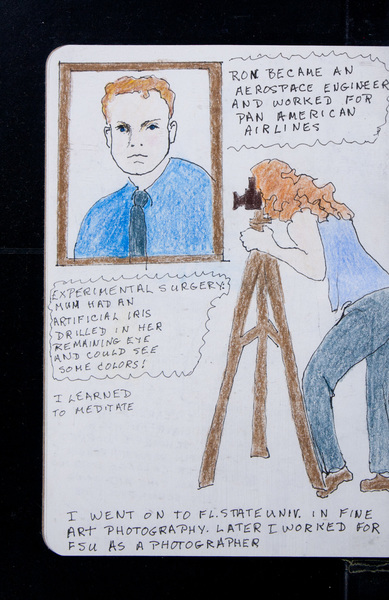 RON BECAME AN
AEROSPACE ENGINEER
AND WORKED FOR
PAN AMERICAN
AIRLINES
EXPERIMENTAL SURGERY:
MUM HAD AN
ARTIFICIAL IRIS
DRILLED IN HER
REMAINING EYE
AND COULD SEE
SOME COLORS!
I LEARNED
TO MEDITATE
I WENT ON TO FL.STATE UNIV. IN FINE
ART PHOTOGRAPHY. LATER I WORKED FOR
FSU AS A PHOTOGRAPHER